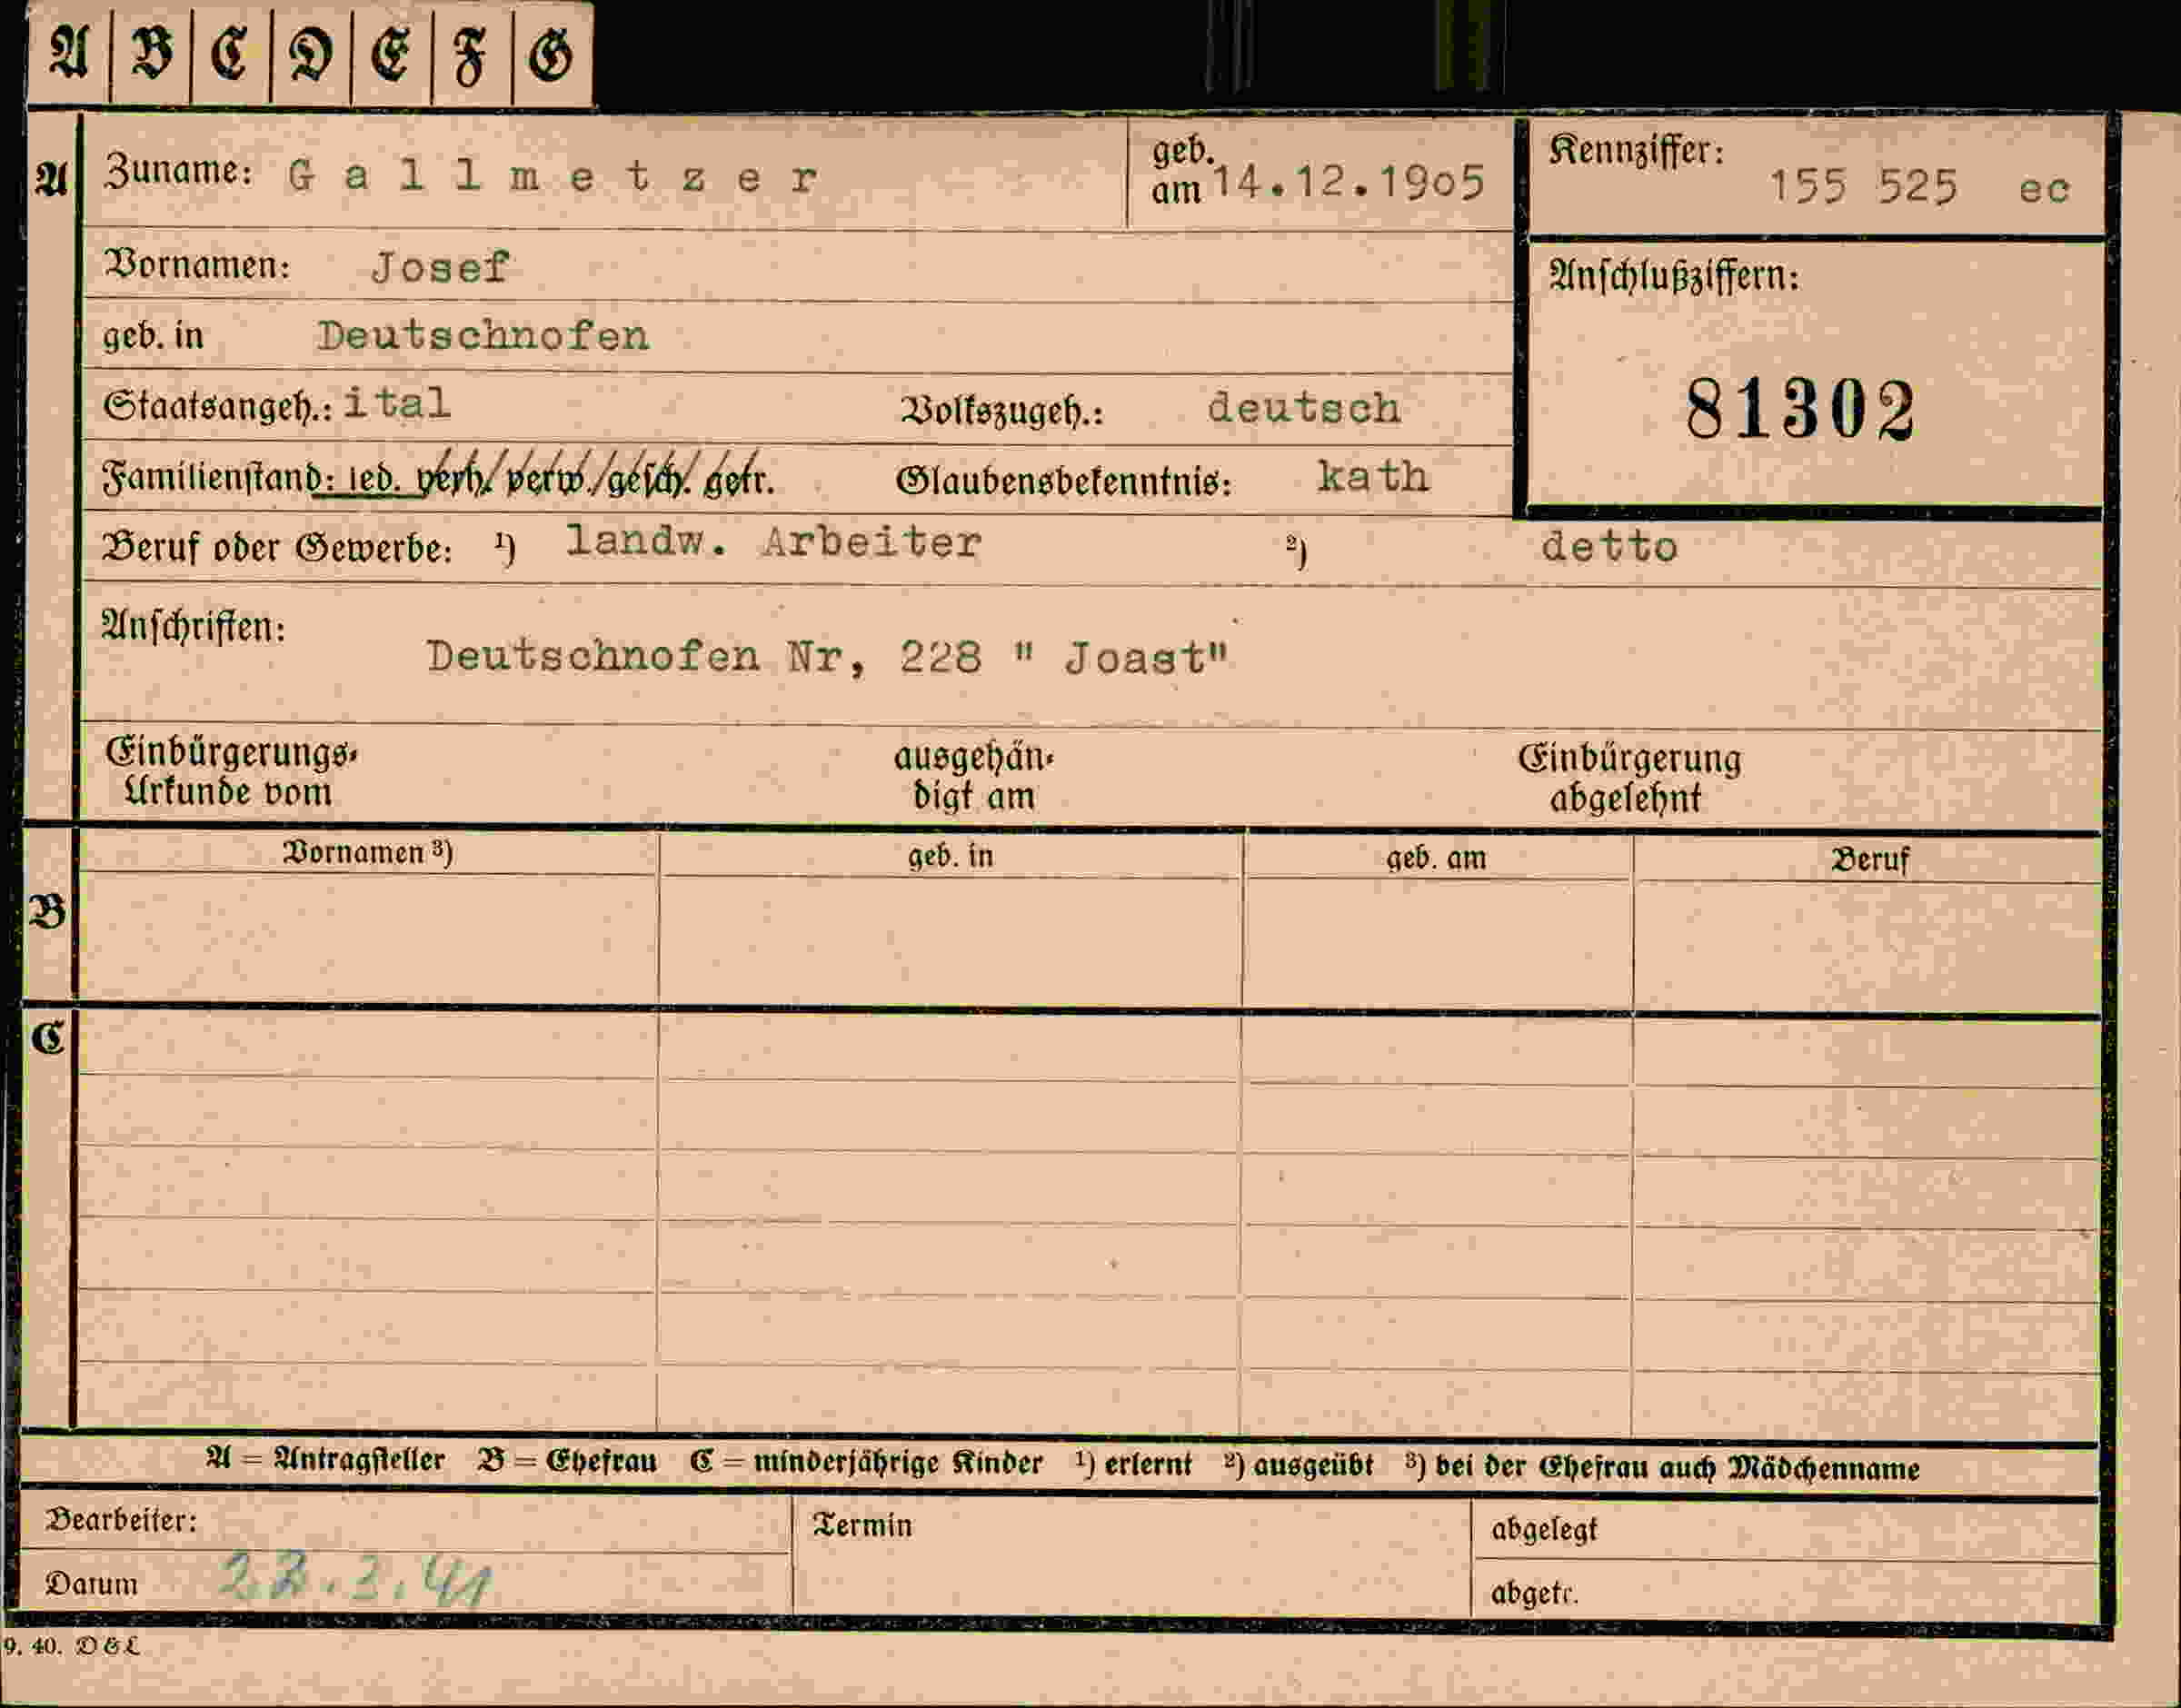 A B C D E F G
A Zuname: Gallmetzer geb. am 14.12.1905 Kennziffer: 155 525 ec
Vornamen: Josef
Anschlußziffern:
geb. in Deutschnofen
Staatsangeh.: ital Volkszugeh.: deutsch
81302
Familienstand: led. verh./verw./gesch. getr. Glaubensbekenntnis: kath
Beruf oder Gewerbe: 1) landw. Arbeiter 2) detto
Anschriften:
Deutschnofen Nr, 228 " Joast"
Einbürgerungs- ausgehän- Einbürgerung
Urkunde vom digt am abgelehnt
Vornamen 3) geb. in geb. am Beruf
B
C
A = Antragsteller B = Ehefrau C = minderjährige Kinder 1) erlernt 2) ausgeübt 3) bei der Ehefrau auch Mädchenname
Bearbeiter: Termin abgelegt
Datum 22.3.41 abgetr.
9. 40. DGL